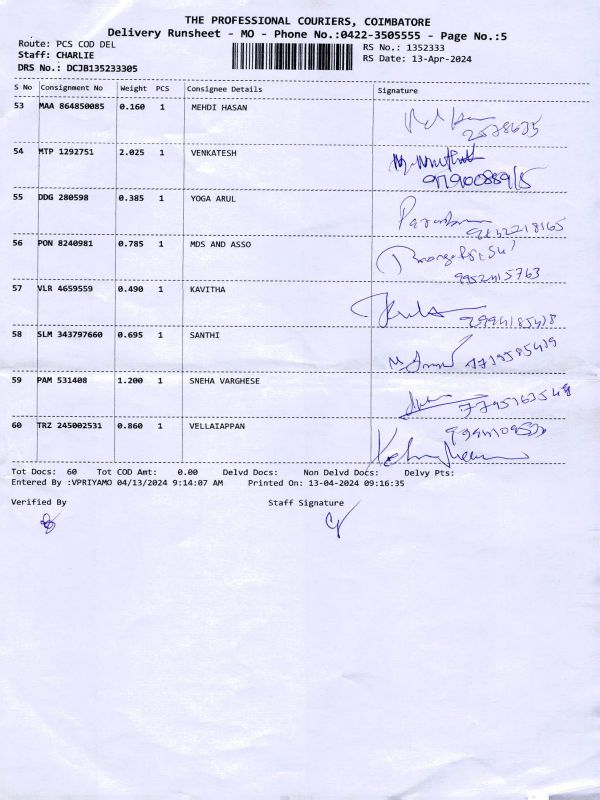 THE PROFESSIONAL COURIERS, COIMBATORE
Delivery Runsheet - MO - Phone No.:0422-3505555 - Page No.:5
Route: PCS COD DEL
RS No.: 1352333
Staff: CHARLIE
RS Date: 13-Apr-2024
DRS No.: DCJB135233305
S No Consignment No Weight PCS Consignee Details Signature
53 MAA 864850085 0.160 1 MEHDI HASAN
54 MTP 1292751 2.025 1 VENKATESH
55 DDG 280598 0.385 1 YOGA ARUL
9842218165
56 PON 8240981 0.785 1 MDS AND ASSO
9952415763
57 VLR 4659559 0.490 1 KAVITHA
9994185418
58 SLM 343797660 0.695 1 SANTHI
59 PAM 531408 1.200 1 SNEHA VARGHESE
60 TRZ 245002531 0.860 1 VELLAIAPPAN
Tot Docs: 60 Tot COD Amt: 0.00 Delvd Docs: Non Delvd Docs: Delvy Pts:
Entered By :VPRIYAMO 04/13/2024 9:14:07 AM Printed On: 13-04-2024 09:16:35
Verified By Staff Signature